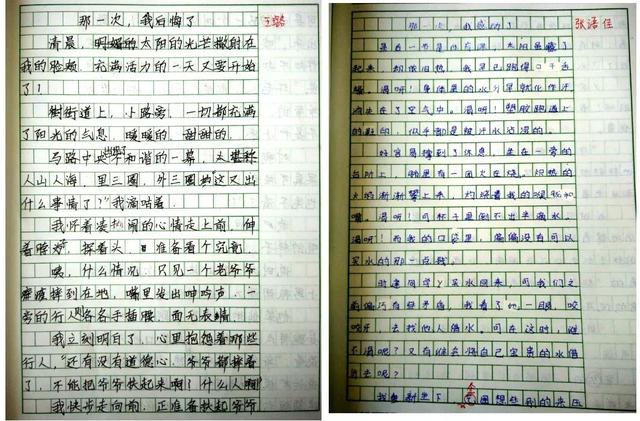 那一次，我后悔了
清晨，明媚的太阳的光芒撒射在
我的脸颊，充满活力的一天又要开始
了！
树街道上，小路旁，一切都充满
了阳光的气息，暖暖的，甜甜的。
与路中央出现了不和谐的一幕，堪称
人山人海，里三圈，外三圈，"这又出
什么事情了？"我嘀咕着。
我怀着凑热闹的心情走上前，伸
着脖子，探着头，准备看个究竟
咦，什么情况，只见一个老爷爷
摔到在地，嘴里发出呻吟声，一
旁的行人则各各手插腰，面无表情
我立刻明白了，心里抱怨着那些
行人，"还有没有道德心，爷爷都摔着
了，不能把爷爷扶起来啊！什么人啊！
我快步走向前，正准备扶起爷爷
那一次，我感动了
张语佳
是在一节体育课，太阳虽藏了
起来，却依旧热，我早已跑得口干舌
燥。渴呀！身体里的水分早就化作汗
流失在了空气中。渴呀！塑胶跑道上
的鞋印，似乎都是被汗水沾湿的。
好容易撑到了休息，坐在一旁的
台阶上，胸里有一团火在烧。炽热的
火焰渐渐攀上来，灼烧着我的喉咙和
嘴。渴呀！可杯子里倒不出半滴水。
渴呀！而我的口袋里，偏偏没有可以
买水的那一点钱。
时逢同学买水回来，可我们之
前偏巧有些矛盾，我看了她一眼，咬
咬牙，去找他人借水。可在这时，谁
不渴呢？又有谁会将自己宝贵的水借
出去呢？
我重新坐下，企图想些别的来压